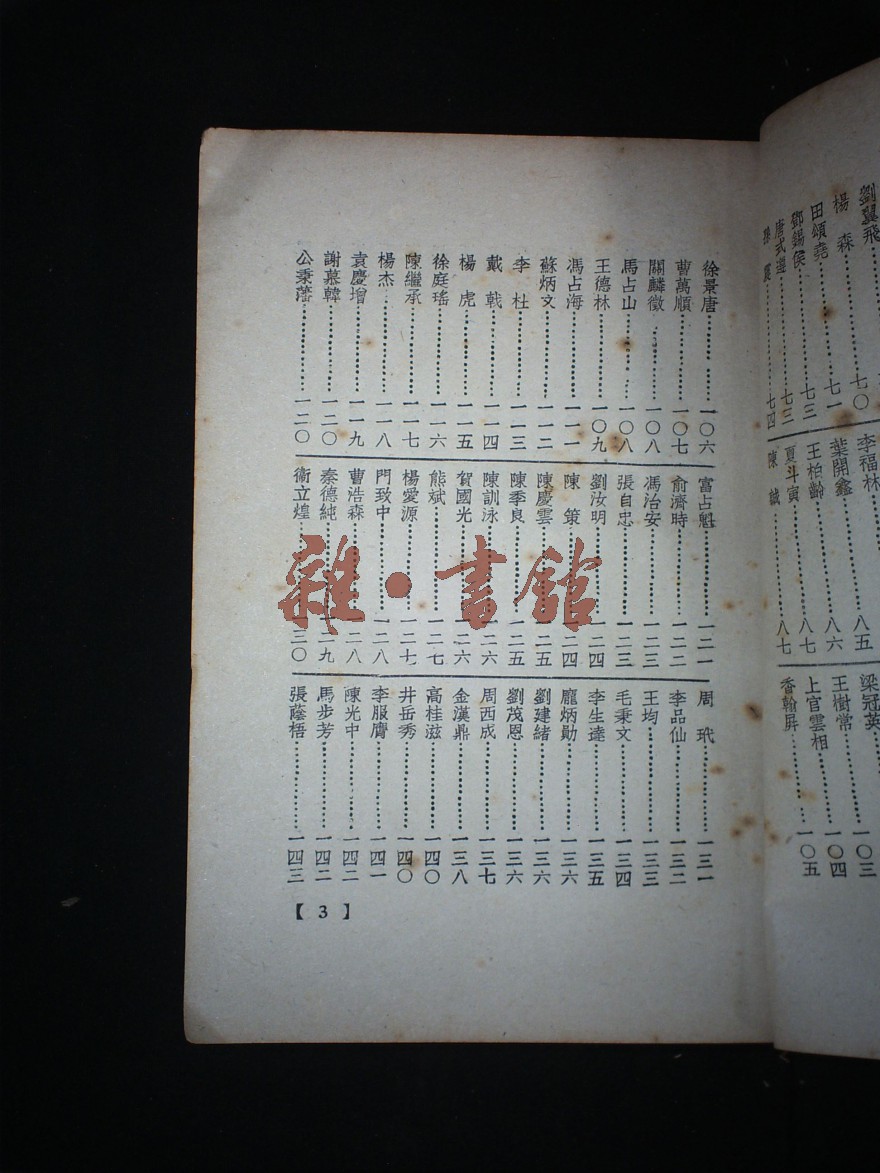 劉翼飛
楊 森…………七〇
田頌堯…………七一
鄧錫侯…………七三
唐式遵…………七三
孫 震…………七四
李福林…………八五
葉開鑫…………八六
王柏齡…………八七
夏斗寅…………八七
陳 誠
梁冠英…………一〇三
王樹常…………一〇四
上官雲相…………一〇五
香翰屏
徐景唐…………一〇六
曹萬順…………一〇七
關麟徵…………一〇八
馬占山…………一〇八
王德林…………一〇九
馮占海…………一一一
蘇炳文…………一一二
李 杜…………一一三
戴 戟…………一一四
楊 虎…………一一五
徐庭瑤…………一一六
陳繼承…………一一七
楊杰…………一一八
袁慶增…………一一九
謝慕韓…………一二〇
公秉藩…………一二〇
富占魁…………一二一
俞濟時…………一二二
馮治安…………一二三
張自忠…………一二三
劉汝明…………一二四
陳 策…………一二四
陳慶雲…………一二五
陳季良…………一二五
陳訓泳…………一二六
賀國光…………一二六
熊斌…………一二七
楊愛源…………一二七
門致中…………一二八
曹浩森…………一二八
秦德純…………一二九
衞立煌…………一三〇
周 玳…………一三一
李品仙…………一三二
王均…………一三三
毛秉文…………一三四
李生達…………一三五
龐炳勛…………一三六
劉建緒…………一三六
劉茂恩…………一三六
周西成…………一三七
金漢鼎…………一三八
高桂滋…………一四〇
井岳秀…………一四〇
李服膺…………一四一
陳光中…………一四二
馬步芳…………一四二
張蔭梧…………一四三
【 3 】
雜·書館